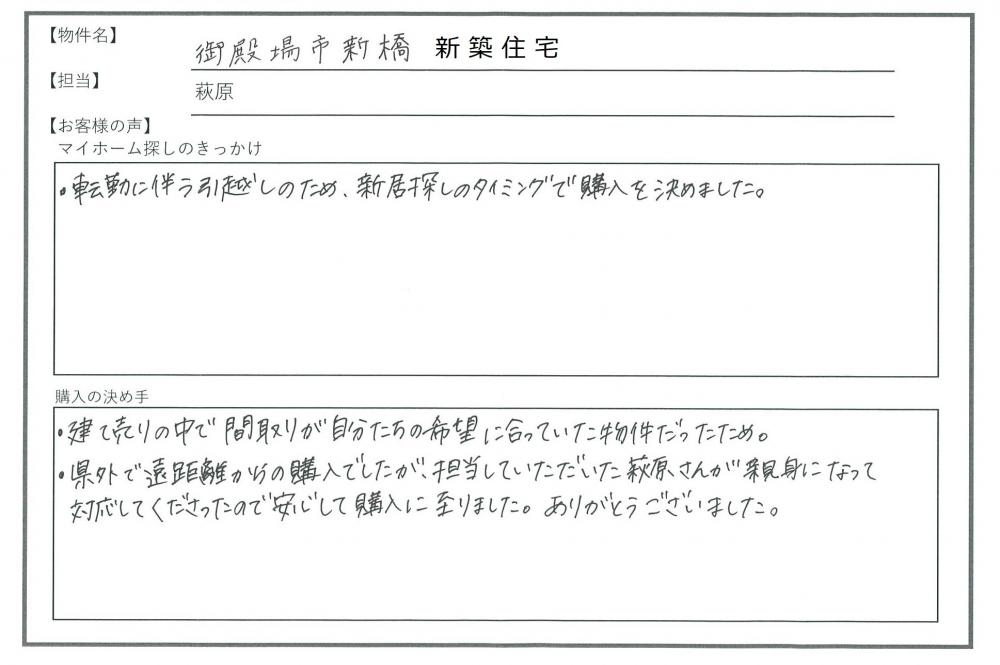 【物件名】
御殿場市新橋 新築住宅
【担当】
萩原
【お客様の声】
マイホーム探しのきっかけ
・転勤に伴う引越しのため、新居探しのタイミングで購入を決めました。
購入の決め手
・建て売りの中で間取りが自分たちの希望に合っていた物件だったため。
・県外で遠距離からの購入でしたが、担当していただいた萩原さんが親身になって
対応してくださったので安心して購入に至りました。ありがとうございました。